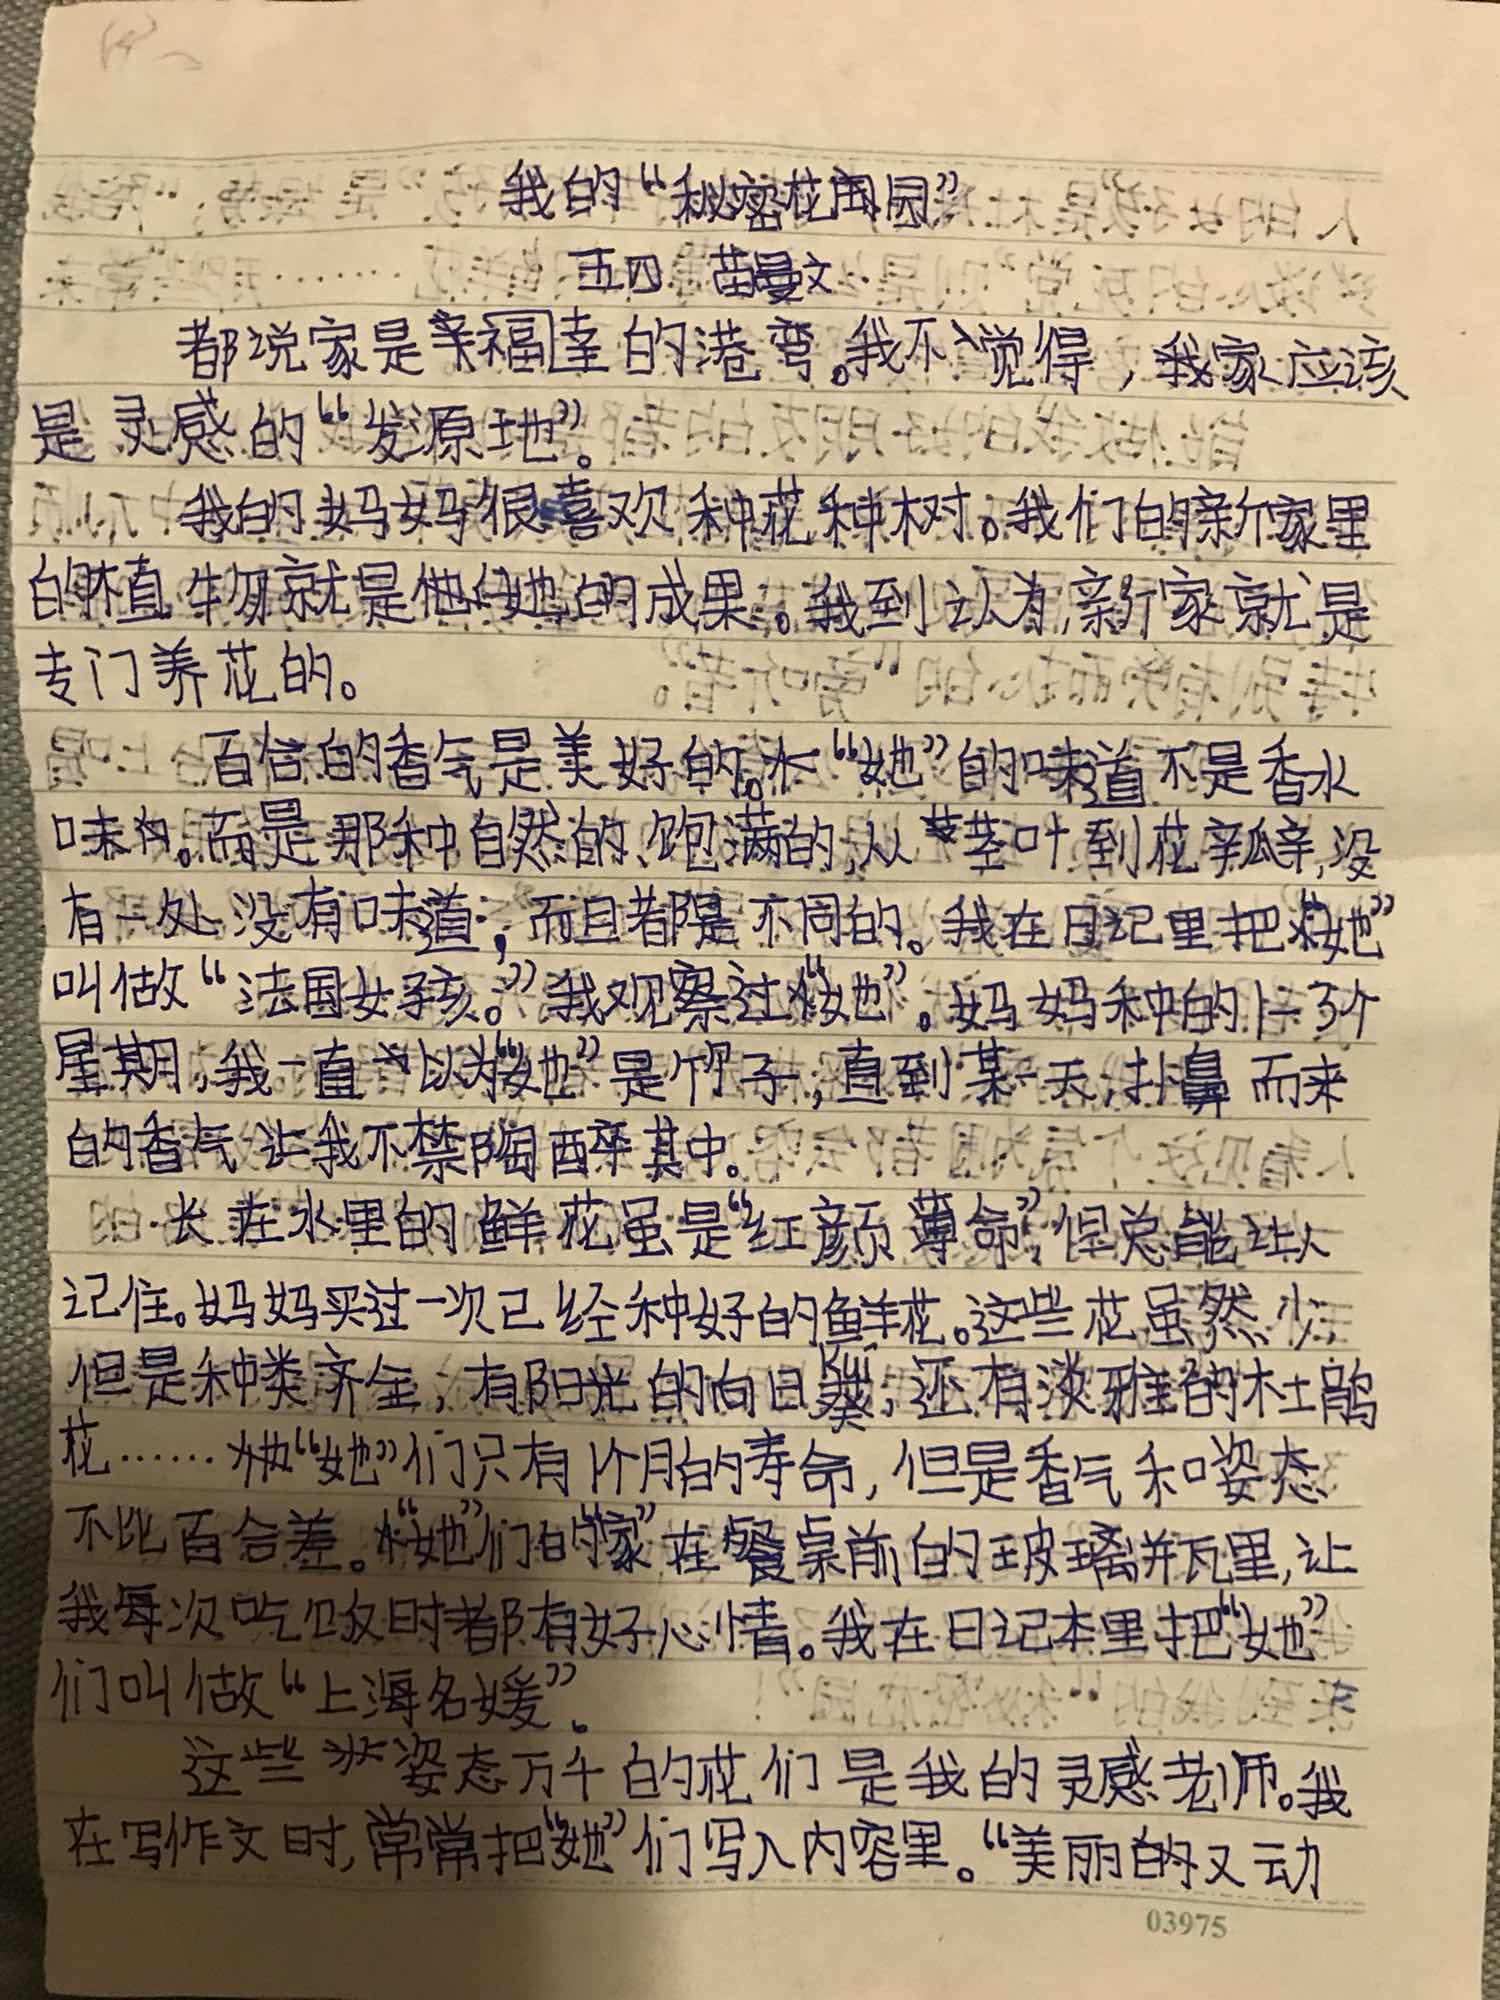 我的“秘密花园”
五四 苗曼文
都说家是幸福的港弯。我不觉得，我家应该
是灵感的“发源地”。
我的妈妈很喜欢种花种树。我们的新家里
的植物就是她的成果。我到认为，新家就是
专门养花的。
百合的香气是美好的。“她”的味道不是香水
味的。而是那种自然的、饱满的，从茎叶到花瓣，没
有一处没有味道；而且都是不同的。我在日记里把“她”
叫做“法国女孩。”我观察过“她”。妈妈种的1-3个
星期，我一直以为“她”是竹子，直到某一天，扑鼻而来
的香气让我不禁陶醉其中。
长在水里的鲜花虽是“红颜薄命”，但总能让人
记住。妈妈买过一次已经种好的鲜花。这些花虽然少，
但是种类齐全，有阳光的向日葵，还有淡雅的杜鹃
kuí
花……“她”们只有1个月的寿命，但是香气和姿态
不比百合差。“她”们的“家”在餐桌前的玻璃瓶里，让
我每次吃饭时都有好心情。我在日记本里把“她”
们叫做“上海名媛”。
这些姿态万千的花们是我的灵感老师。我
在写作文时，常常把“她”们写入内容里。“美丽的又动
03975